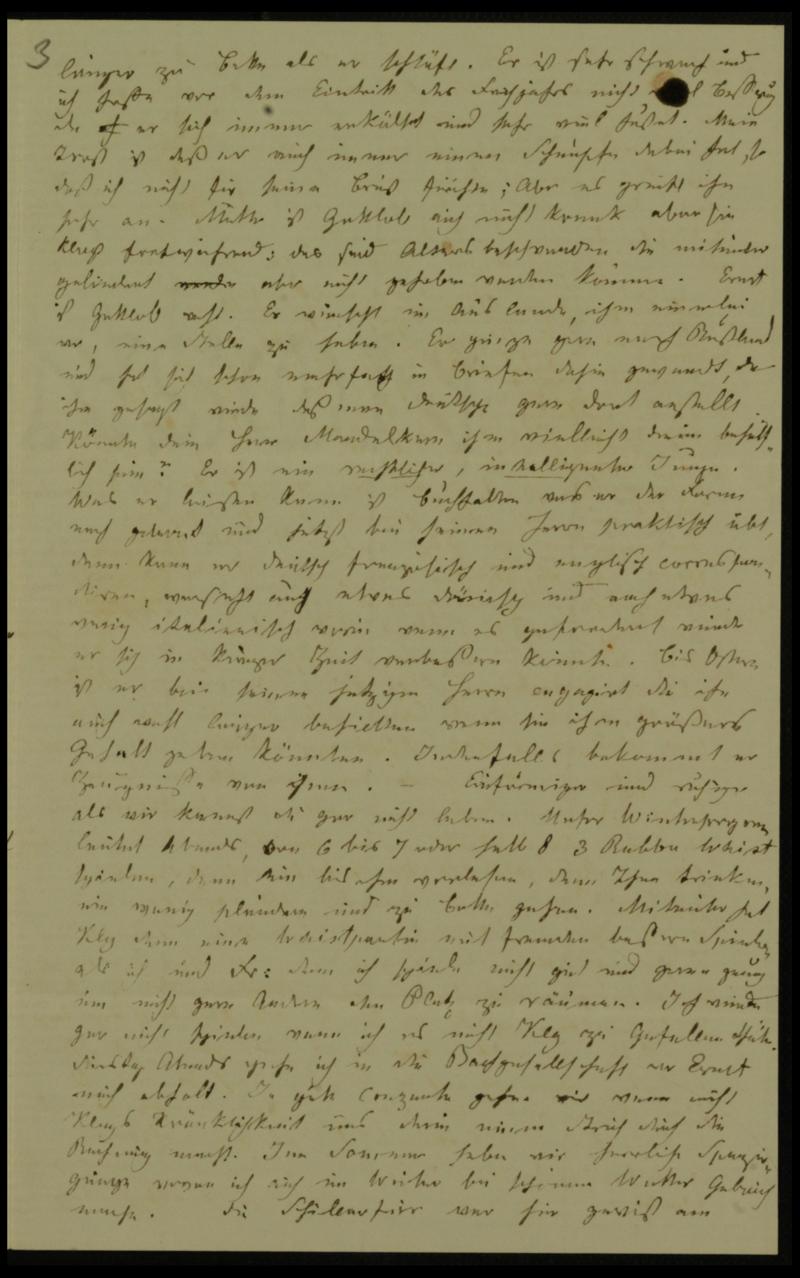 3
länger zu Bette als er schläft. Er ist sehr schwach und
ich hoffe vor dem Eintritt des Frühjahrs nicht viel Besserung
da er sich immer erkältet und sehr viel hustet. Mein
Trost ist daß er auch immer einen Schnupfen dabei hat, so
daß ich nicht für seine Brust fürchte; Aber es greift ihn
sehr an. Mutter ist Gottlob auch nicht krank aber sie
klagt fortwährend; das sind Altersbeschwerden die mitunter
gelindert aber nicht gehoben werden können. Ernst
ist Gottlob wohl. Er wünscht im Auslande, ihm einerlei
wo, eine Stelle zu haben. Er ginge gern nach Rußland
und hat sich schon mehrfach in Briefen dahin gewandt, da
ihm gesagt wurde daß man Deutsche gern dort anstellt.
Könnte dein Herr Mandelkern ihm vielleicht darin behülf-
lich sein? Er ist ein rechtlicher, intelligenter Junge.
Was er leisten kann ist Buchhalten was er der Form
nach gelernt und jetzt bei seinem Herrn praktisch übt,
dann kann er deutsch französisch und englisch correspon-
diren, versteht auch etwas dänisch und auch etwas
wenig italienisch worin wenn es gefordert würde
er sich in kurzer Zeit verbessern könnte. Bis Ostern
ist er bei seinem jetzigen Herrn engagirt die ihn
auch wohl länger behielten wenn sie ihm größeres
Gehalt geben könnten. Jedenfalls bekommt er
Zeugnisse von ihnen. – Einförmiger und ruhiger
als wir kannst du gar nicht leben. Unser Winterprogramm
lautet Abends, von 6 bis 7 oder halb 8 3 Rubber Whist
spielen, dann ein bischen vorlesen, dann Thee trinken,
ein wenig plaudern und zu Bette gehen. Mitunter hat
Klg dann eine Whistpartie mit fremden bessern Spielern
als ich und Fr: denn ich spiele nicht gut und gerne genug
um nicht gern Andern den Platz zu räumen. Ich würde
gar nicht spielen wenn ich es nicht Klg zu Gefallen thäte.
Dinstag Abends gehe ich in die Bachgesellschaft wo Ernst
mich abholt. In gute Conzerte gehen wir wenn nicht
Klgs Kränklichkeit uns darin einen Strich durch die
Rechnung macht. Im Sommer haben wir herrliche Spazier-
gänge wovon ich auch im Winter bei schönem Wetter Gebrauch
mache. Die Schillerfeier war hier gewiß am